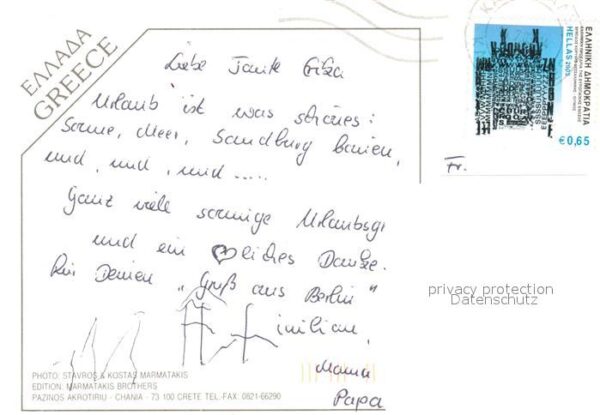 ΕΛΛΑΔΑ
GREECE
Liebe Tante Gisa
Urlaub ist was schönes:
Sonne, Meer, Sandburg bauen,
und, und, und.....
Ganz viele sonnige Urlaubsg
und ein ♡liches Danke
für Deinen „Gruß aus Berlin"
inilian,
Mama
Papa
Fr.
ΕΛΛΗΝΙΚΗ ΔΗΜΟΚΡΑΤΙΑ
HELLAS 2003
€0,65
privacy protection
Datenschutz
PHOTO: STAVROS & KOSTAS MARMATAKIS
EDITION: MARMATAKIS BROTHERS
PAZINOS AKROTIRIU - CHANIA - 73 100 CRETE TEL.-FAX. 0821-66290